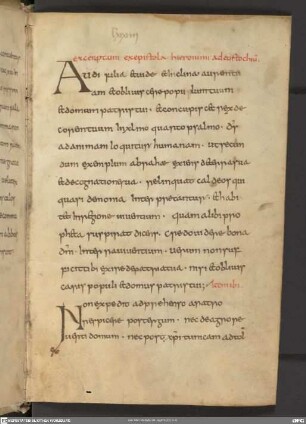 excerptum ex epistola hieronimi ad eustochiu
Audi filia et uide et inclina aurem tu
am et obliuiscere populum tuum
et domum patris tui · et concupiscet rex de
corem tuum In xlmo quarto psalmo · ds
ad animam loquitur humanam · ut secun
dum exemplum abrahae exiens de terra sua
et de cognatione sua · relinquat caldeos qui
quasi demonia interpretantur · et habi
tet in regione uiuentium · quam alibi pro
pheta suspirat dicens · credo uidere bona
dni in terra uiuentium · uerum non suf
ficit tibi exire de patria tua · nisi obliuis
caris populi et domus patris tui ·
Non expedit adprehenso aratro
respicere post tergum · nec de agro re
uerti domum · nec post xpi tunicam ad tol